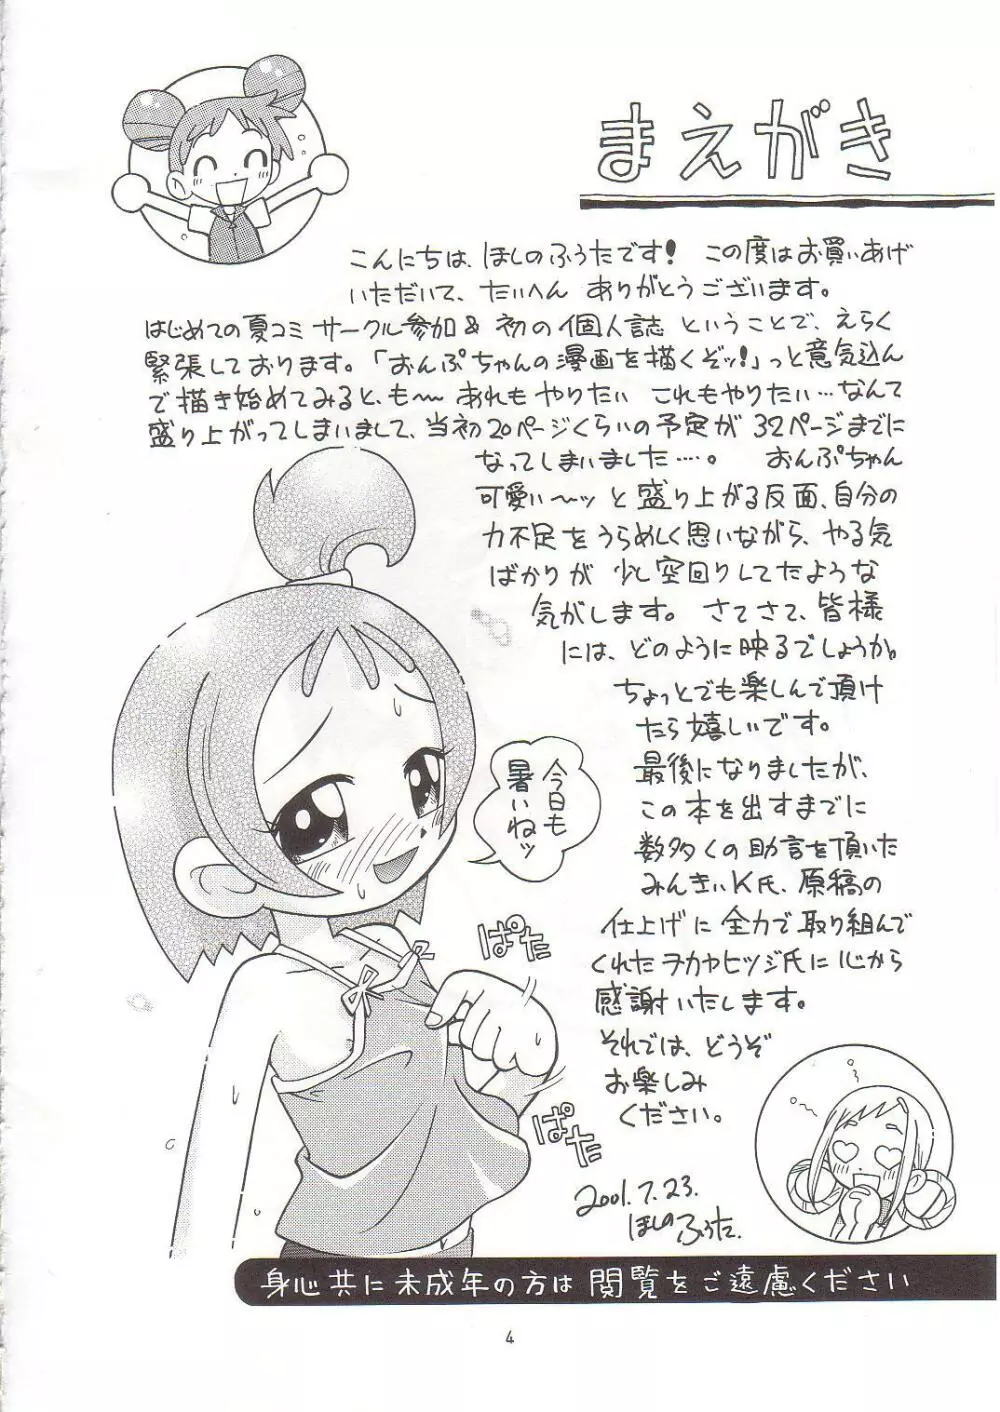 まえがき
こんにちは、ほしのふうたです！ この度はお買いあげ
いただいて、たいへん ありがとうございます。
はじめての夏コミ サークル参加＆ 初の個人誌 ということで、えらく
緊張しております。「おんぷちゃんの漫画を描くぞッ！」っと意気込ん
で描き始めてみると、も〜 あれもやりたい これもやりたい…なんて
盛り上がってしまいまして、当初20ページくらいの予定が 32ページまでに
なってしまいました…。 おんぷちゃん
可愛い〜ッ と盛り上がる反面、自分の
力不足をうらめしく思いながら、やる気
ばかりが 少し空回りしてたような
気がします。 さてさて、皆様
には、どのように映るでしょうか。
ちょっとでも楽しんで頂け
たら嬉しいです。
最後になりましたが、
この本を出すまでに
数多くの助言を頂いた
みんきぃK氏、原稿の
仕上げに全力で取り組んで
くれたヲカヤヒツジ氏に心から
感謝いたします。
それでは、どうぞ
お楽しみ
ください。
今日も
暑いねッ
ぱた
ぱた
2001.7.23.
ほしのふうた.
身心共に未成年の方は 閲覧をご遠慮ください
4